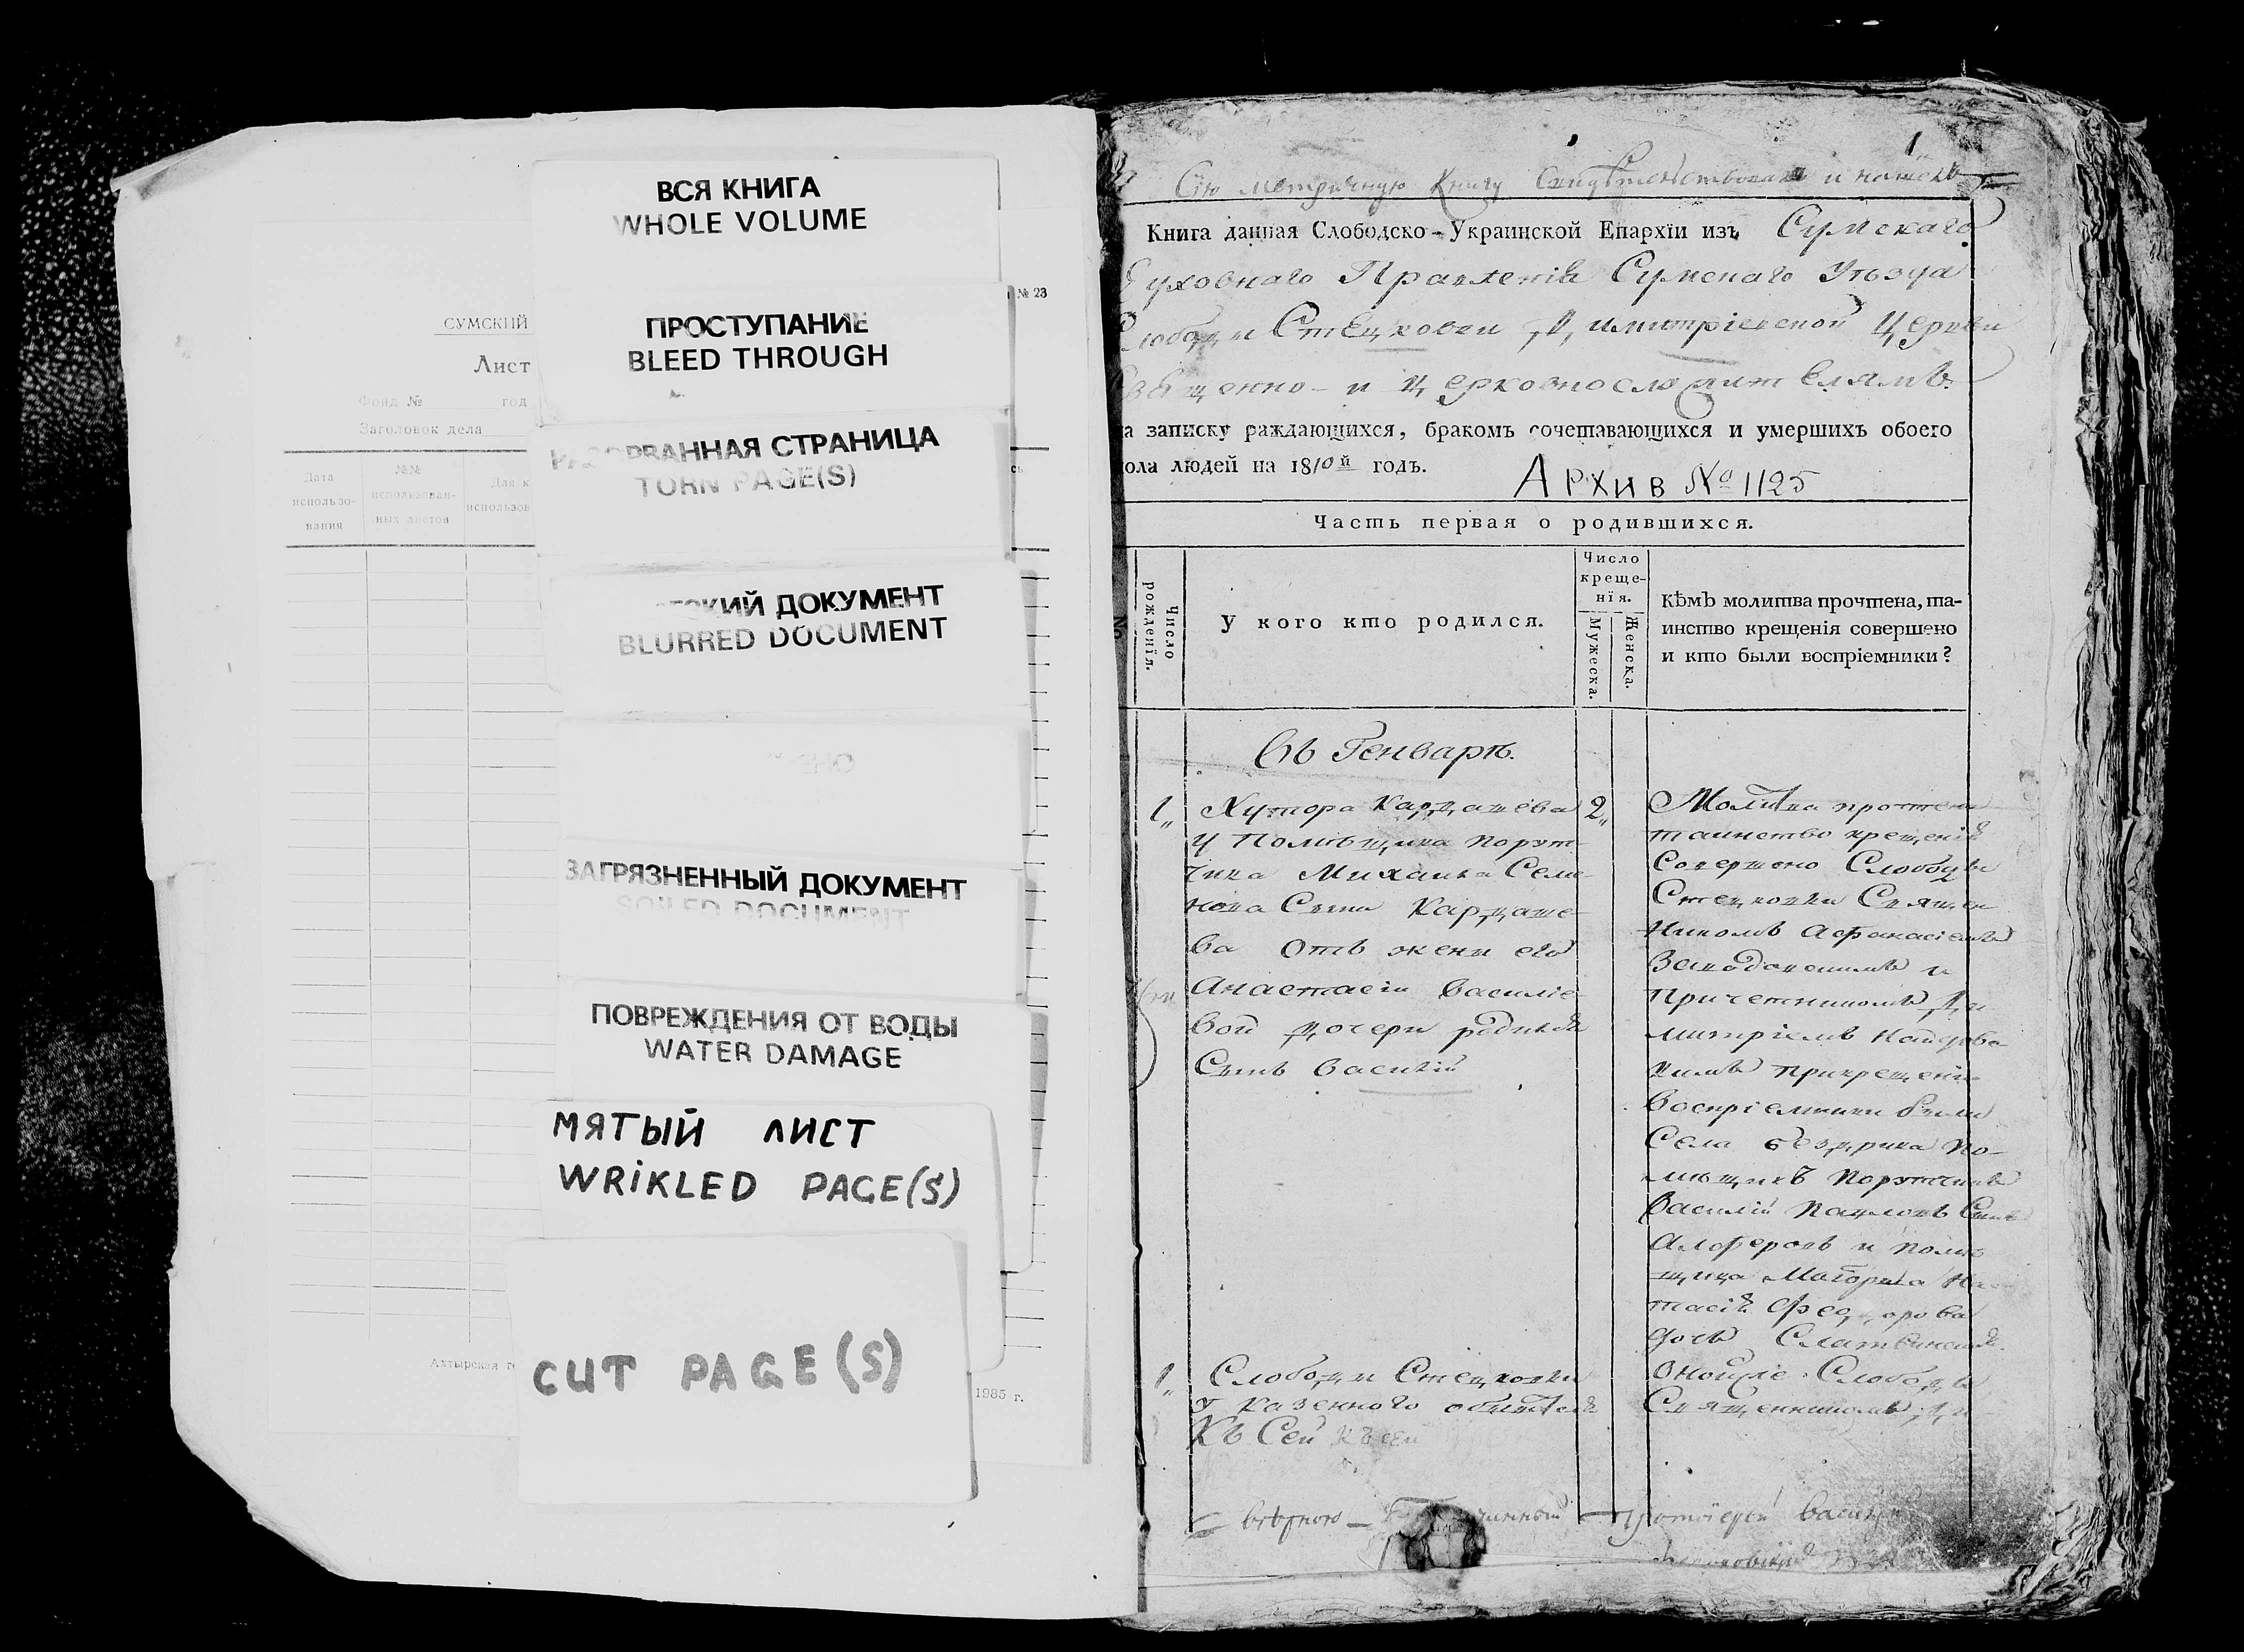 ВСЯ КНИГА
WHOLE VOLUME
№ 23
СУМСКИЙ
ПРОСТУПАНИЕ
BLEED THROUGH
Лист
Фонд № год
Заголовок дела
РАЗОРВАННАЯ СТРАНИЦА
TORN PAGE(S)
Дата использо-вания
№№ использован-ных листов
Для к
использов
КИЙ ДОКУМЕНТ
BLURRED DOCUMENT
ЗАГРЯЗНЕННЫЙ ДОКУМЕНТ
SOILED DOCUMENT
ПОВРЕЖДЕНИЯ ОТ ВОДЫ
WATER DAMAGE
МЯТЫЙ ЛИСТ
WRIKLED PAGE(S)
CUT PAGE(S)
Ахтырская
1985 г.
1
Сію метричную Книгу свидѣтельствовалъ и нашелъ
Книга данная Слободско-Украинской Епархїи изъ Сумскаго
Духовнаго Правленія Сумскаго Уѣзда
Слободи Стецковки Димитріевской Церкви
Священно- и церковнослужителямъ
на записку раждающихся, бракомъ сочетавающихся и умершихъ обоего
пола людей на 1810й годъ.
Архив № 1125
Часть первая о родившихся.
№
Число рожденїя.
У кого кто родился.
Число
креще-
нїя.
Мужеска.
Женска.
Кѣмъ молитва прочтена, та-
инство крещенїя совершено
и кто были воспрїемники?
Въ Генварѣ.
1,, Хутора Кардашева 2,,
у Помѣщика порут-
чика Михаила Семе-
нова Сына Кардаше-
ва отъ жени его
Анастасіи Василіе-
вой дочери родился
Сынъ Василій
Молитва прочтена
таинство крещенія
Совершено Слободы
Стецковки Священ
Никомъ Афанасіемъ
и
Причетникомъ Ди
митріемъ
при крещеніи
Воспріемники были
Села Бездрика по-
мѣщикъ Порутчикъ
Василій Павловъ Сынъ
Алферовъ и помѣ
щица Маіорша Нас
тасія Федорова
дочь
1,, Слободи Стецковки
у казенного обитателя
Къ Сей къ сей
Оной же Слободы
Священникомъ
вѣрною — Благочинный Протоіерей Василій